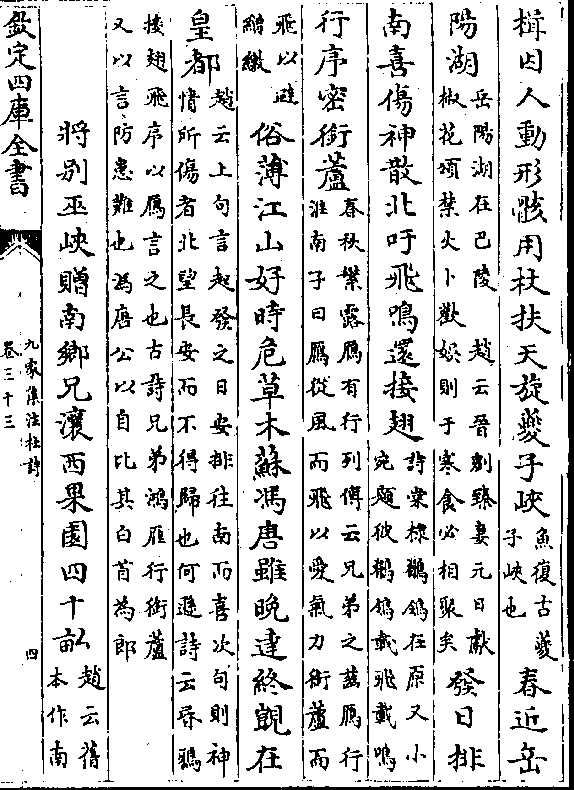 楫因人動形骸用杖扶天旋夔子峽魚復古夔子峽也春近岳
陽湖岳陽湖在巴陵趙云晉劉臻妻元日獻椒花頌禁火卜歡娛則于寒食必相聚矣發日排
南喜傷神散北吁飛鳴還接翅詩棠棣鶺鴒在原又小宛題彼鶺鴒載飛載鳴
行序密銜蘆春秋繁露鴈有行列傳云兄弟之齒鴈行淮南子曰鴈從風而飛以愛氣力銜蘆而
飛以避繒繳俗薄江山好時危草木蘇馮唐雖晚達終覬在
皇都趙云上句言起發之日安排往南而喜次句則神情所傷者北望長安而不得歸也何遜詩云昏鵶
接翅飛序以鴈言之也古詩兄弟鴻雁行銜蘆又以言防患難也馮唐公以自比其白首為郎
將别巫峽贈南鄉兄瀼西果園四十畝趙云舊本作南
欽定四庫全書
九家集注杜詩
卷三十三
四